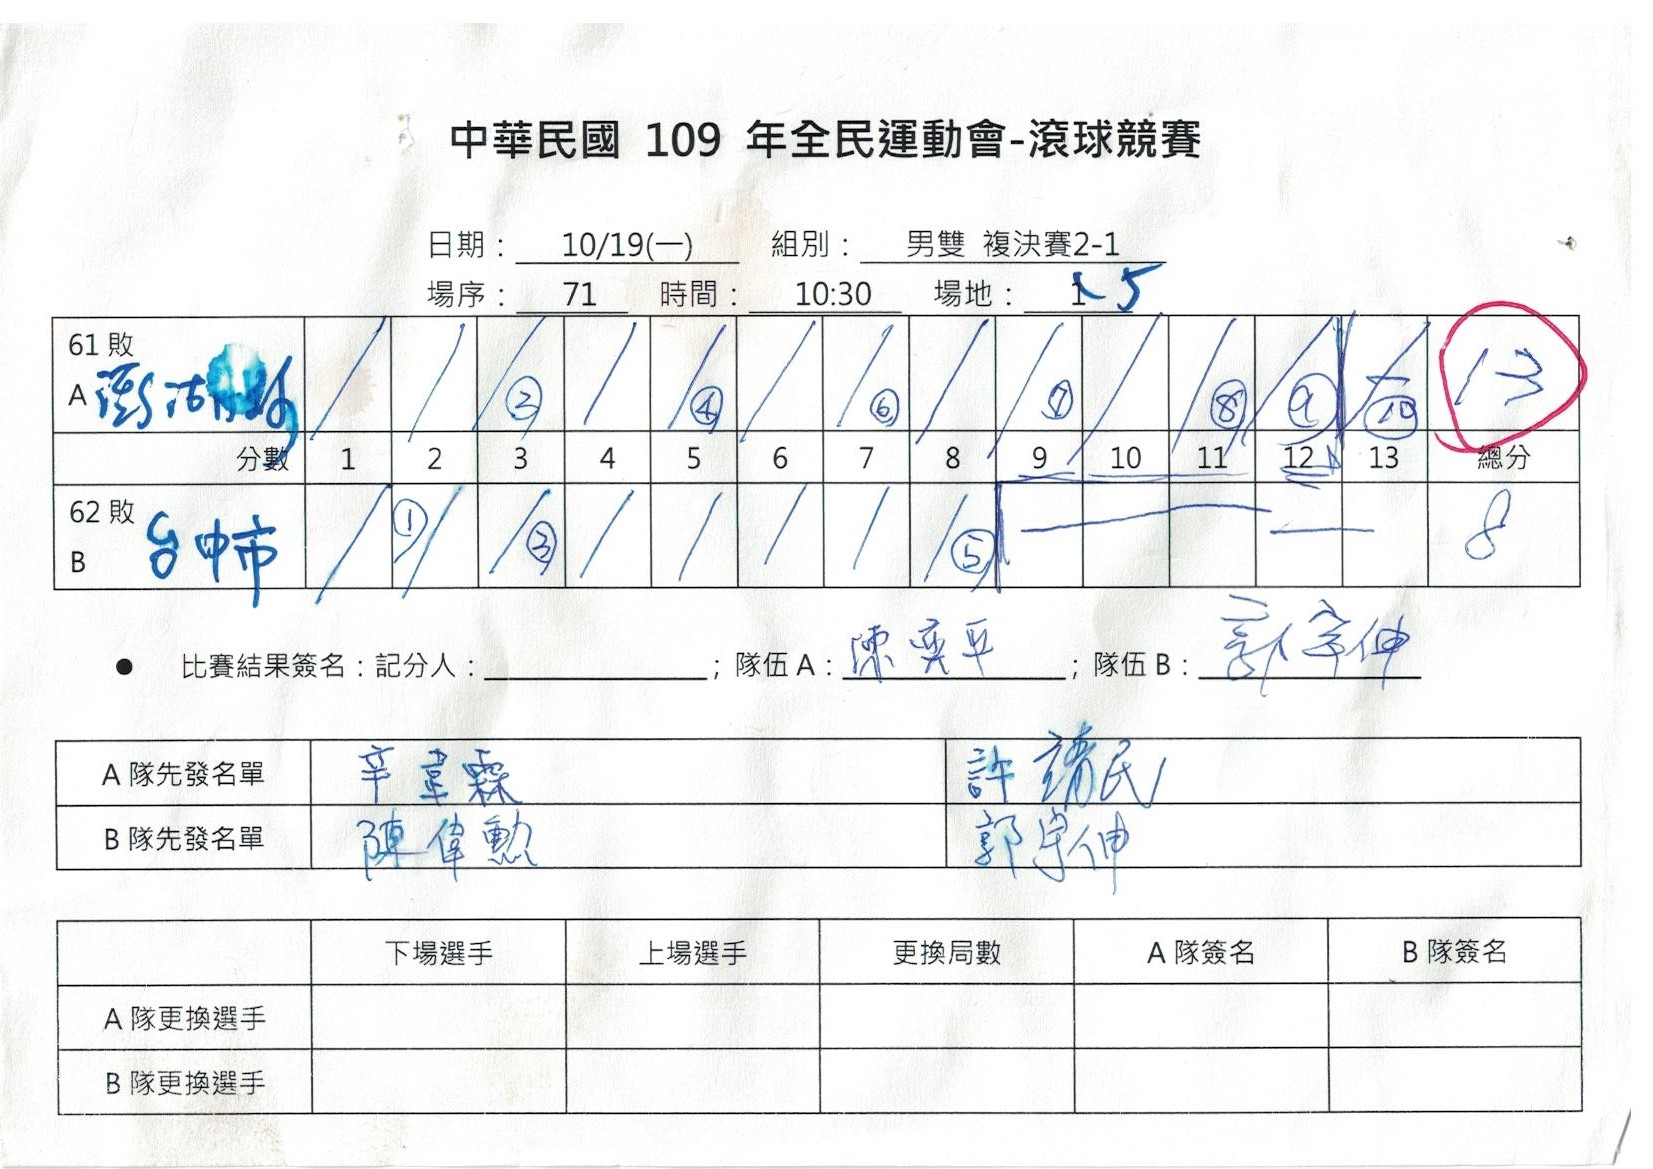 中華民國 109 年全民運動會-滾球競賽
日期： 10/19(一) 組別： 男雙 複決賽2-1
場序： 71 時間： 10:30 場地： 5
61 敗
A 澎湖縣 ② ④ ⑥ ⑦ ⑧ ⑨ ⑩ 13
分數 1 2 3 4 5 6 7 8 9 10 11 12 13 總分
62 敗
B 台中市 ① ③ ⑤ 8
● 比賽結果簽名：記分人： ；隊伍 A： 陳奕平 ；隊伍 B： 郭宇伸
A 隊先發名單 辛韋霖 許靖民
B 隊先發名單 陳偉勳 郭宇伸
下場選手 上場選手 更換局數 A 隊簽名 B 隊簽名
A 隊更換選手
B 隊更換選手